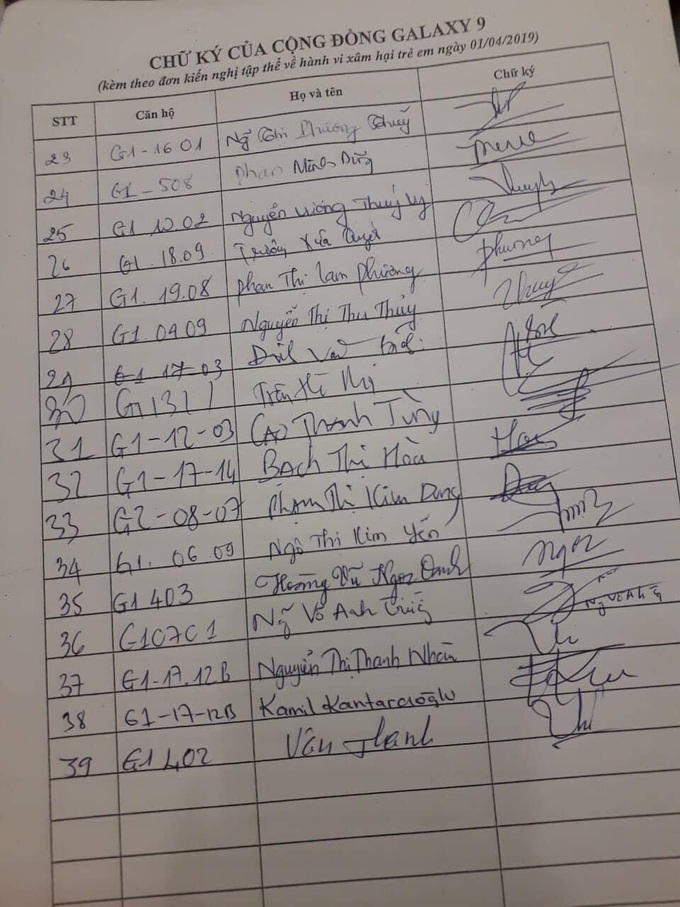 CHỮ KÝ CỦA CỘNG ĐỒNG GALAXY 9
(kèm theo đơn kiến nghị tập thể về hành vi xâm hại trẻ em ngày 01/04/2019)
STT Căn hộ Họ và tên Chữ ký
23 G1-1601 Ng Thị Phương Thuý
24 G1-508 Phan Minh Dũng
25 G1 10.02 Nguyễn Vương Thuý Vy
26 G1.18.09
27 G1.19.08 Phan Thị Lam Phương phuong
28 G1.0909 Nguyễn Thị Thu Thủy Thuy
29 G1 17-03
30 G1311 Trần
31 G1-12-03 CAO THANH TÙNG
32 G1-17-14 BẠCH THỊ Hòa Hoa
33 G2-08-07 PHẠM Thị Kim Dung
34 G1.06 09 Ngô Thị Kim Yến
35 G1 403 Hoàng Vũ Ngọc Oanh Ngoc
36 G107C1 Ng Võ Anh
37 G1-17.12B Nguyễn Thị Thanh Nhàn
38 G1-17-12B Kamil Kantarcıoğlu
39 G1 402 Vân